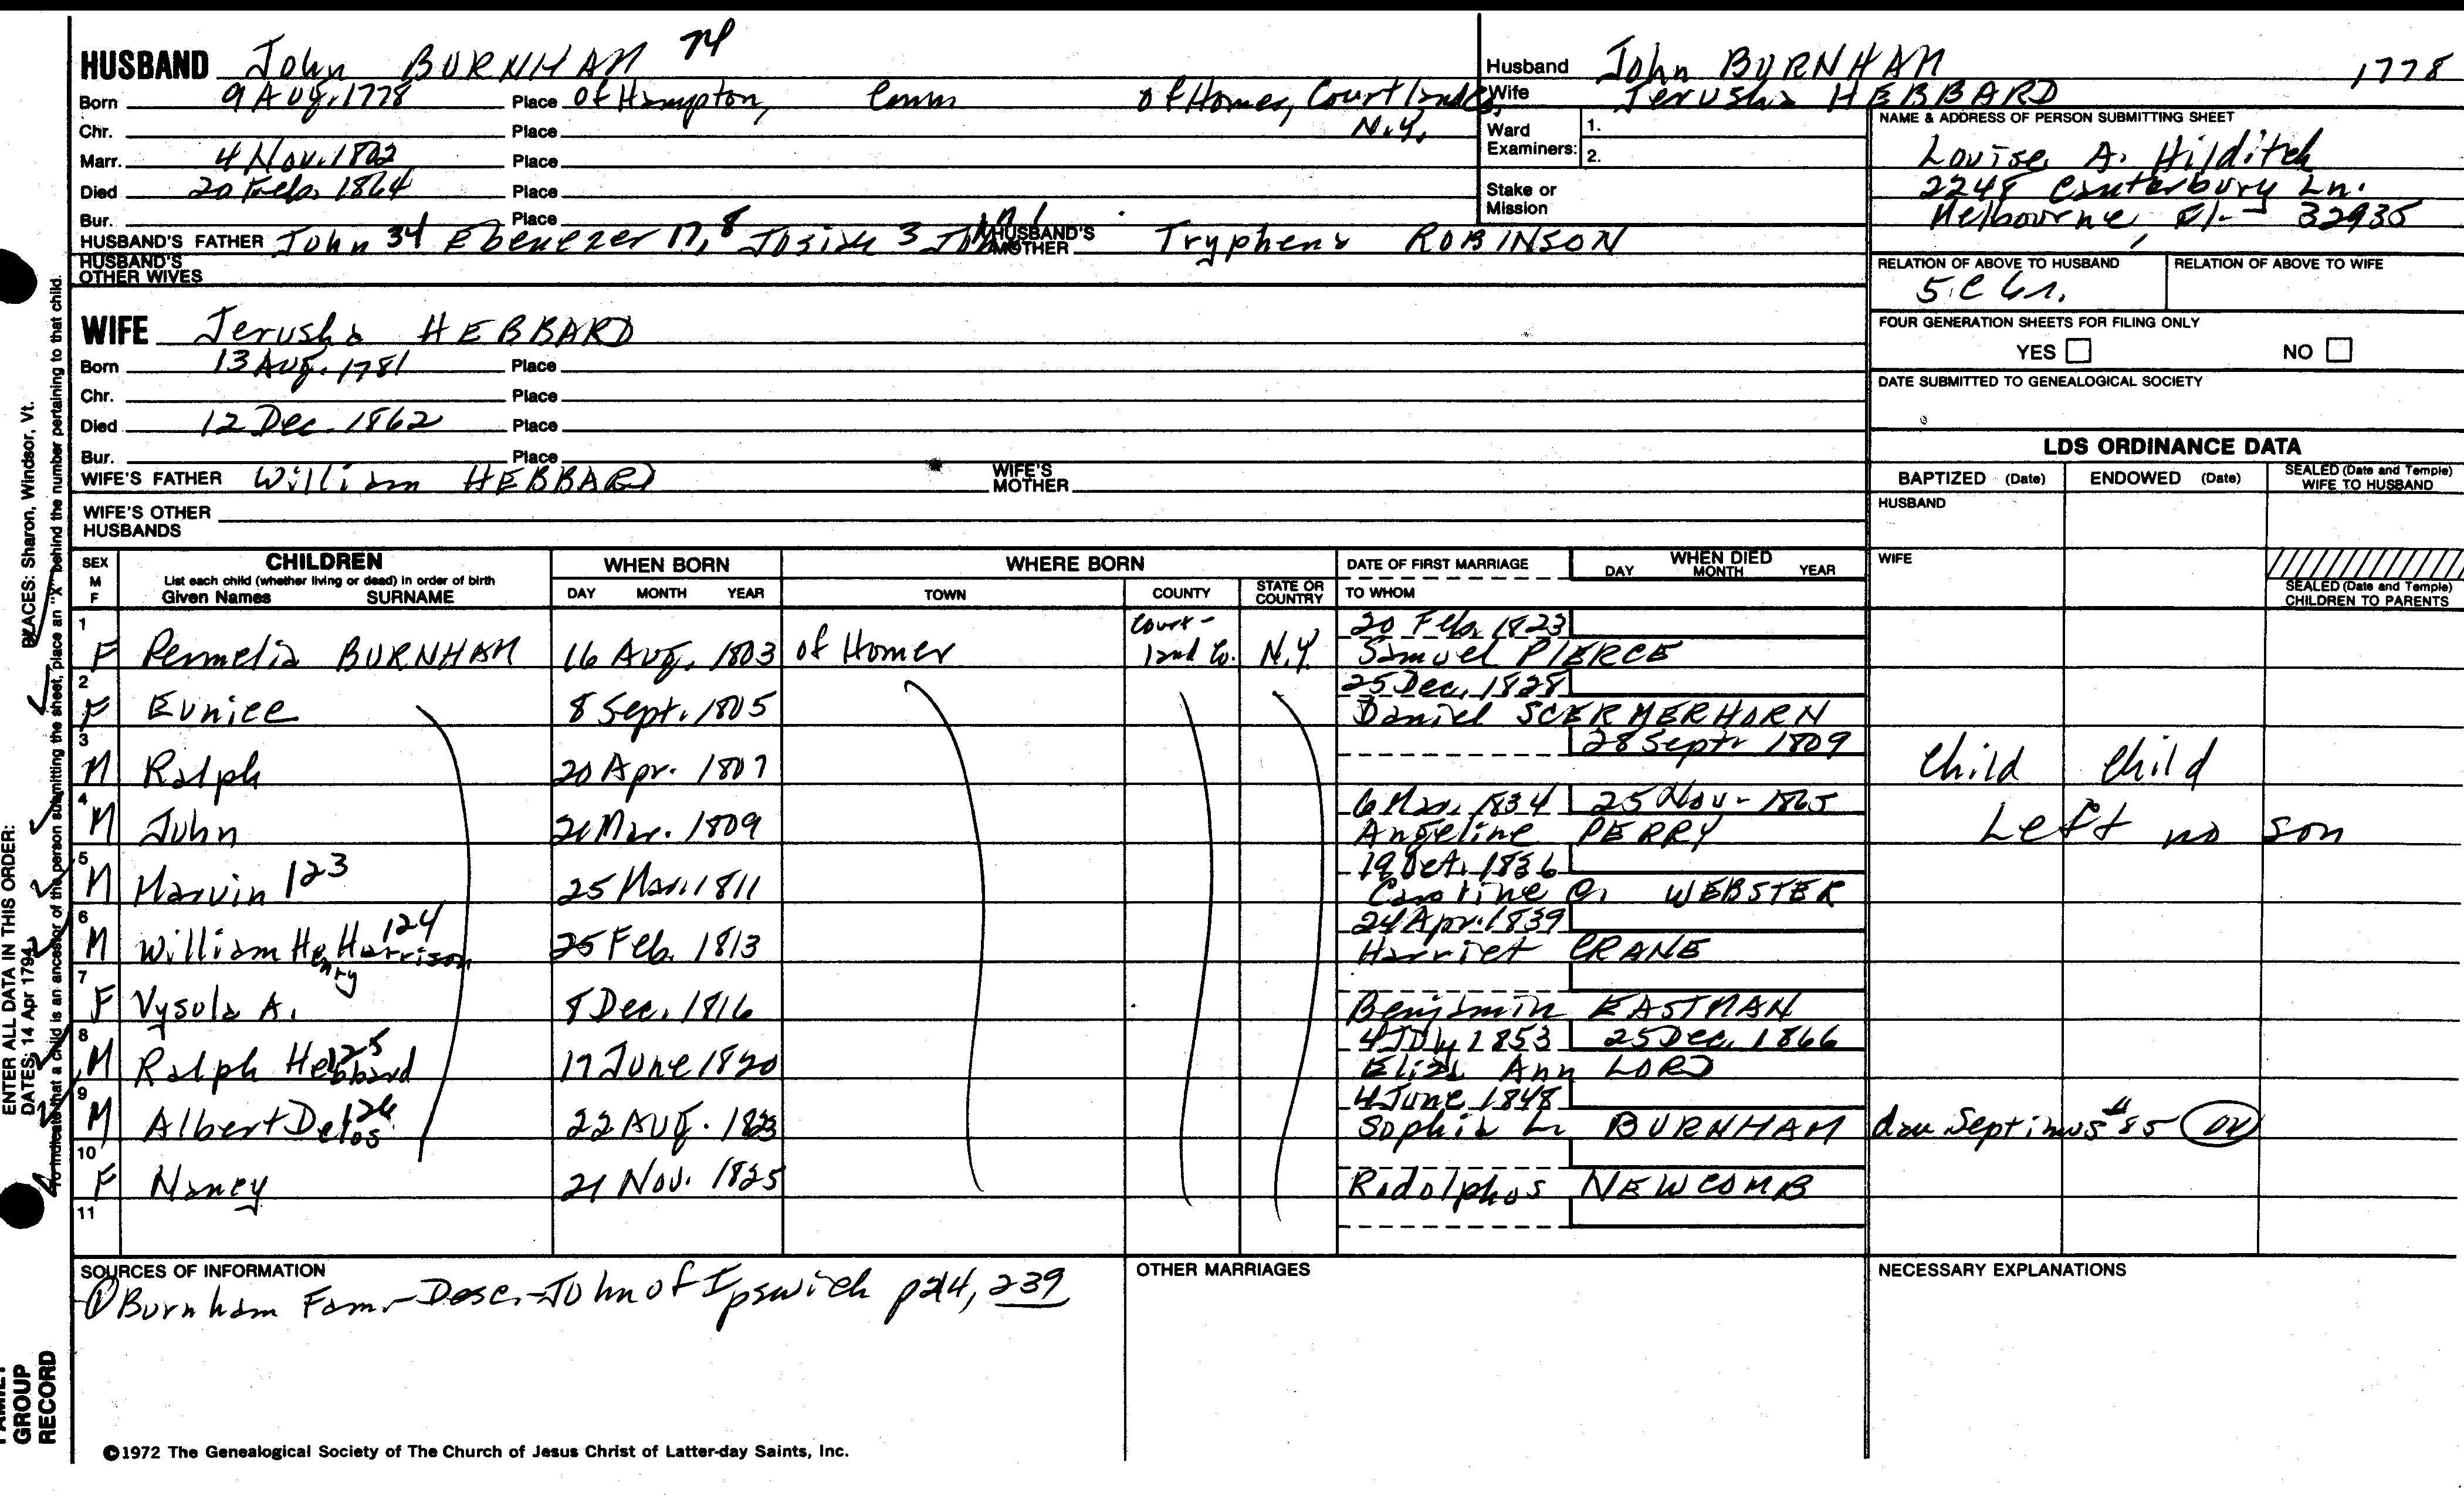 HUSBAND John BURNHAM 74
Born 9 Aug. 1778 Place of Hampton, Conn of Homer, Courtland Co,
Chr. Place N.Y.
Marr. 4 Nov. 1802 Place
Died 20 Feb. 1864 Place
Bur. Place
HUSBAND'S FATHER John 34 Ebenezer 17, 8 Josiah 3 John 1 HUSBAND'S MOTHER Tryphena ROBINSON
HUSBAND'S OTHER WIVES
WIFE Jerusha HEBBARD
Born 13 Aug. 1781 Place
Chr. Place
Died 12 Dec. 1862 Place
Bur. Place
WIFE'S FATHER William HEBBARD WIFE'S MOTHER
WIFE'S OTHER HUSBANDS
Husband John BURNHAM 1778
Wife Jerusha HEBBARD
Ward Examiners: 1.
2.
Stake or Mission
NAME & ADDRESS OF PERSON SUBMITTING SHEET
Louise A. Hilditch
2248 Canterbury Ln.
Melbourne, Fl- 32935
RELATION OF ABOVE TO HUSBAND RELATION OF ABOVE TO WIFE
5 C 4r.
FOUR GENERATION SHEETS FOR FILING ONLY
YES NO
DATE SUBMITTED TO GENEALOGICAL SOCIETY
LDS ORDINANCE DATA
BAPTIZED (Date) ENDOWED (Date) SEALED (Date and Temple) WIFE TO HUSBAND
HUSBAND
WIFE
SEALED (Date and Temple) CHILDREN TO PARENTS
SEX M F CHILDREN WHEN BORN WHERE BORN DATE OF FIRST MARRIAGE WHEN DIED
List each child (whether living or dead) in order of birth
Given Names SURNAME DAY MONTH YEAR TOWN COUNTY STATE OR COUNTRY TO WHOM DAY MONTH YEAR
1 20 Feb. 1823
F Permelia BURNHAM 16 Aug. 1803 of Homer Court-land Co. N.Y. Samuel PIERCE
2 25 Dec. 1828
F Eunice 8 Sept. 1805 Daniel SCERMERHORN
3 28 Sept 1809
M Ralph 20 Apr. 1807 Child Child
4 6 Mar. 1834 25 Nov - 1865
M John 21 Mar. 1809 Angeline PERRY Left no son
5 19 Oct. 1836
M Marvin 123 25 Mar. 1811 Caroline C. WEBSTER
6 24 Apr. 1839
M William Henry Harrison 124 25 Feb. 1813 Harriet CRANE
7
F Vysula A. 8 Dec. 1816 Benjamin EASTMAN
8 4 July 1853 25 Dec. 1866
M Ralph Hebbard 125 17 June 1820 Eliza Ann LORD
9 4 June 1848
M Albert Delos 126 22 Aug. 1823 Sophia L. BURNHAM dau Septimus #85
10
F Nancy 21 Nov. 1825 Rodolphos NEWCOMB
11
SOURCES OF INFORMATION
① Burnham Fam.-Desc.-John of Ipswich p214, 239
OTHER MARRIAGES
NECESSARY EXPLANATIONS
©1972 The Genealogical Society of The Church of Jesus Christ of Latter-day Saints, Inc.
ENTER ALL DATA IN THIS ORDER:
DATES: 14 Apr 1794 PLACES: Sharon, Windsor, Vt.
To indicate that a child is an ancestor of the person submitting the sheet, place an "X" behind the number pertaining to that child.
FAMILY GROUP RECORD